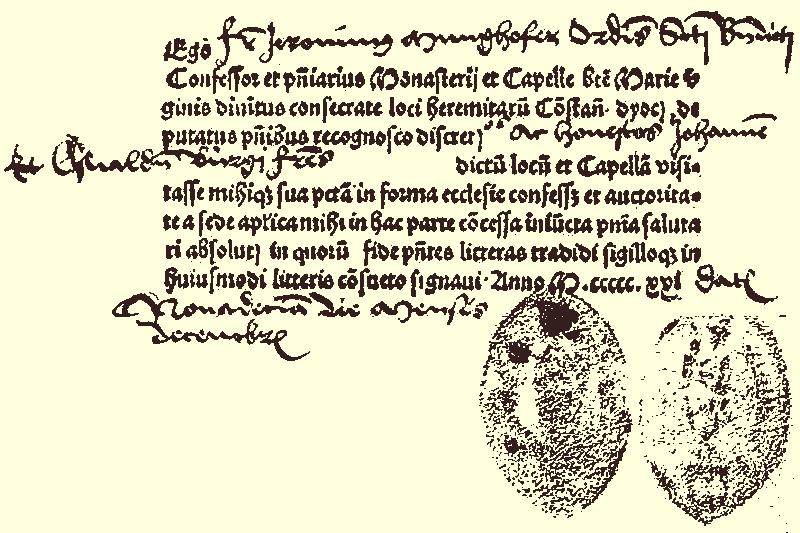 Egō fr̄ Jeronimus Munghofer Ordīs Scti Bn̄dicti
Confessor et pn̄iarius Monasterij et Capelle btē Marie v̄
ginis divītus consecrate loci heremitarū Cōstan̄. dyoc) de
putatus pn̄ibus recognosco discret) ac honestos Johannē
Et dictū locū et Capellā visi-
tasse mihiqȝ sua pctā in forma ecclesie confessȝ et auctorita-
te a sede aplica mihi in hac parte cōcessa iniūcta pn̄ia saluta
ri absolut) in quorū fide pn̄tes litteras tradidi sigilloqȝ in
huiusmodi litteris cōsueto signaui. Anno M.ccccc.xxi Datē
die Mensis
decembrē